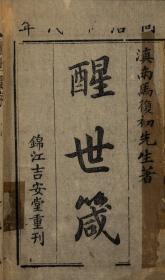 同治八年
滇南馬復初先生著
醒世箴
錦江吉安堂重刊